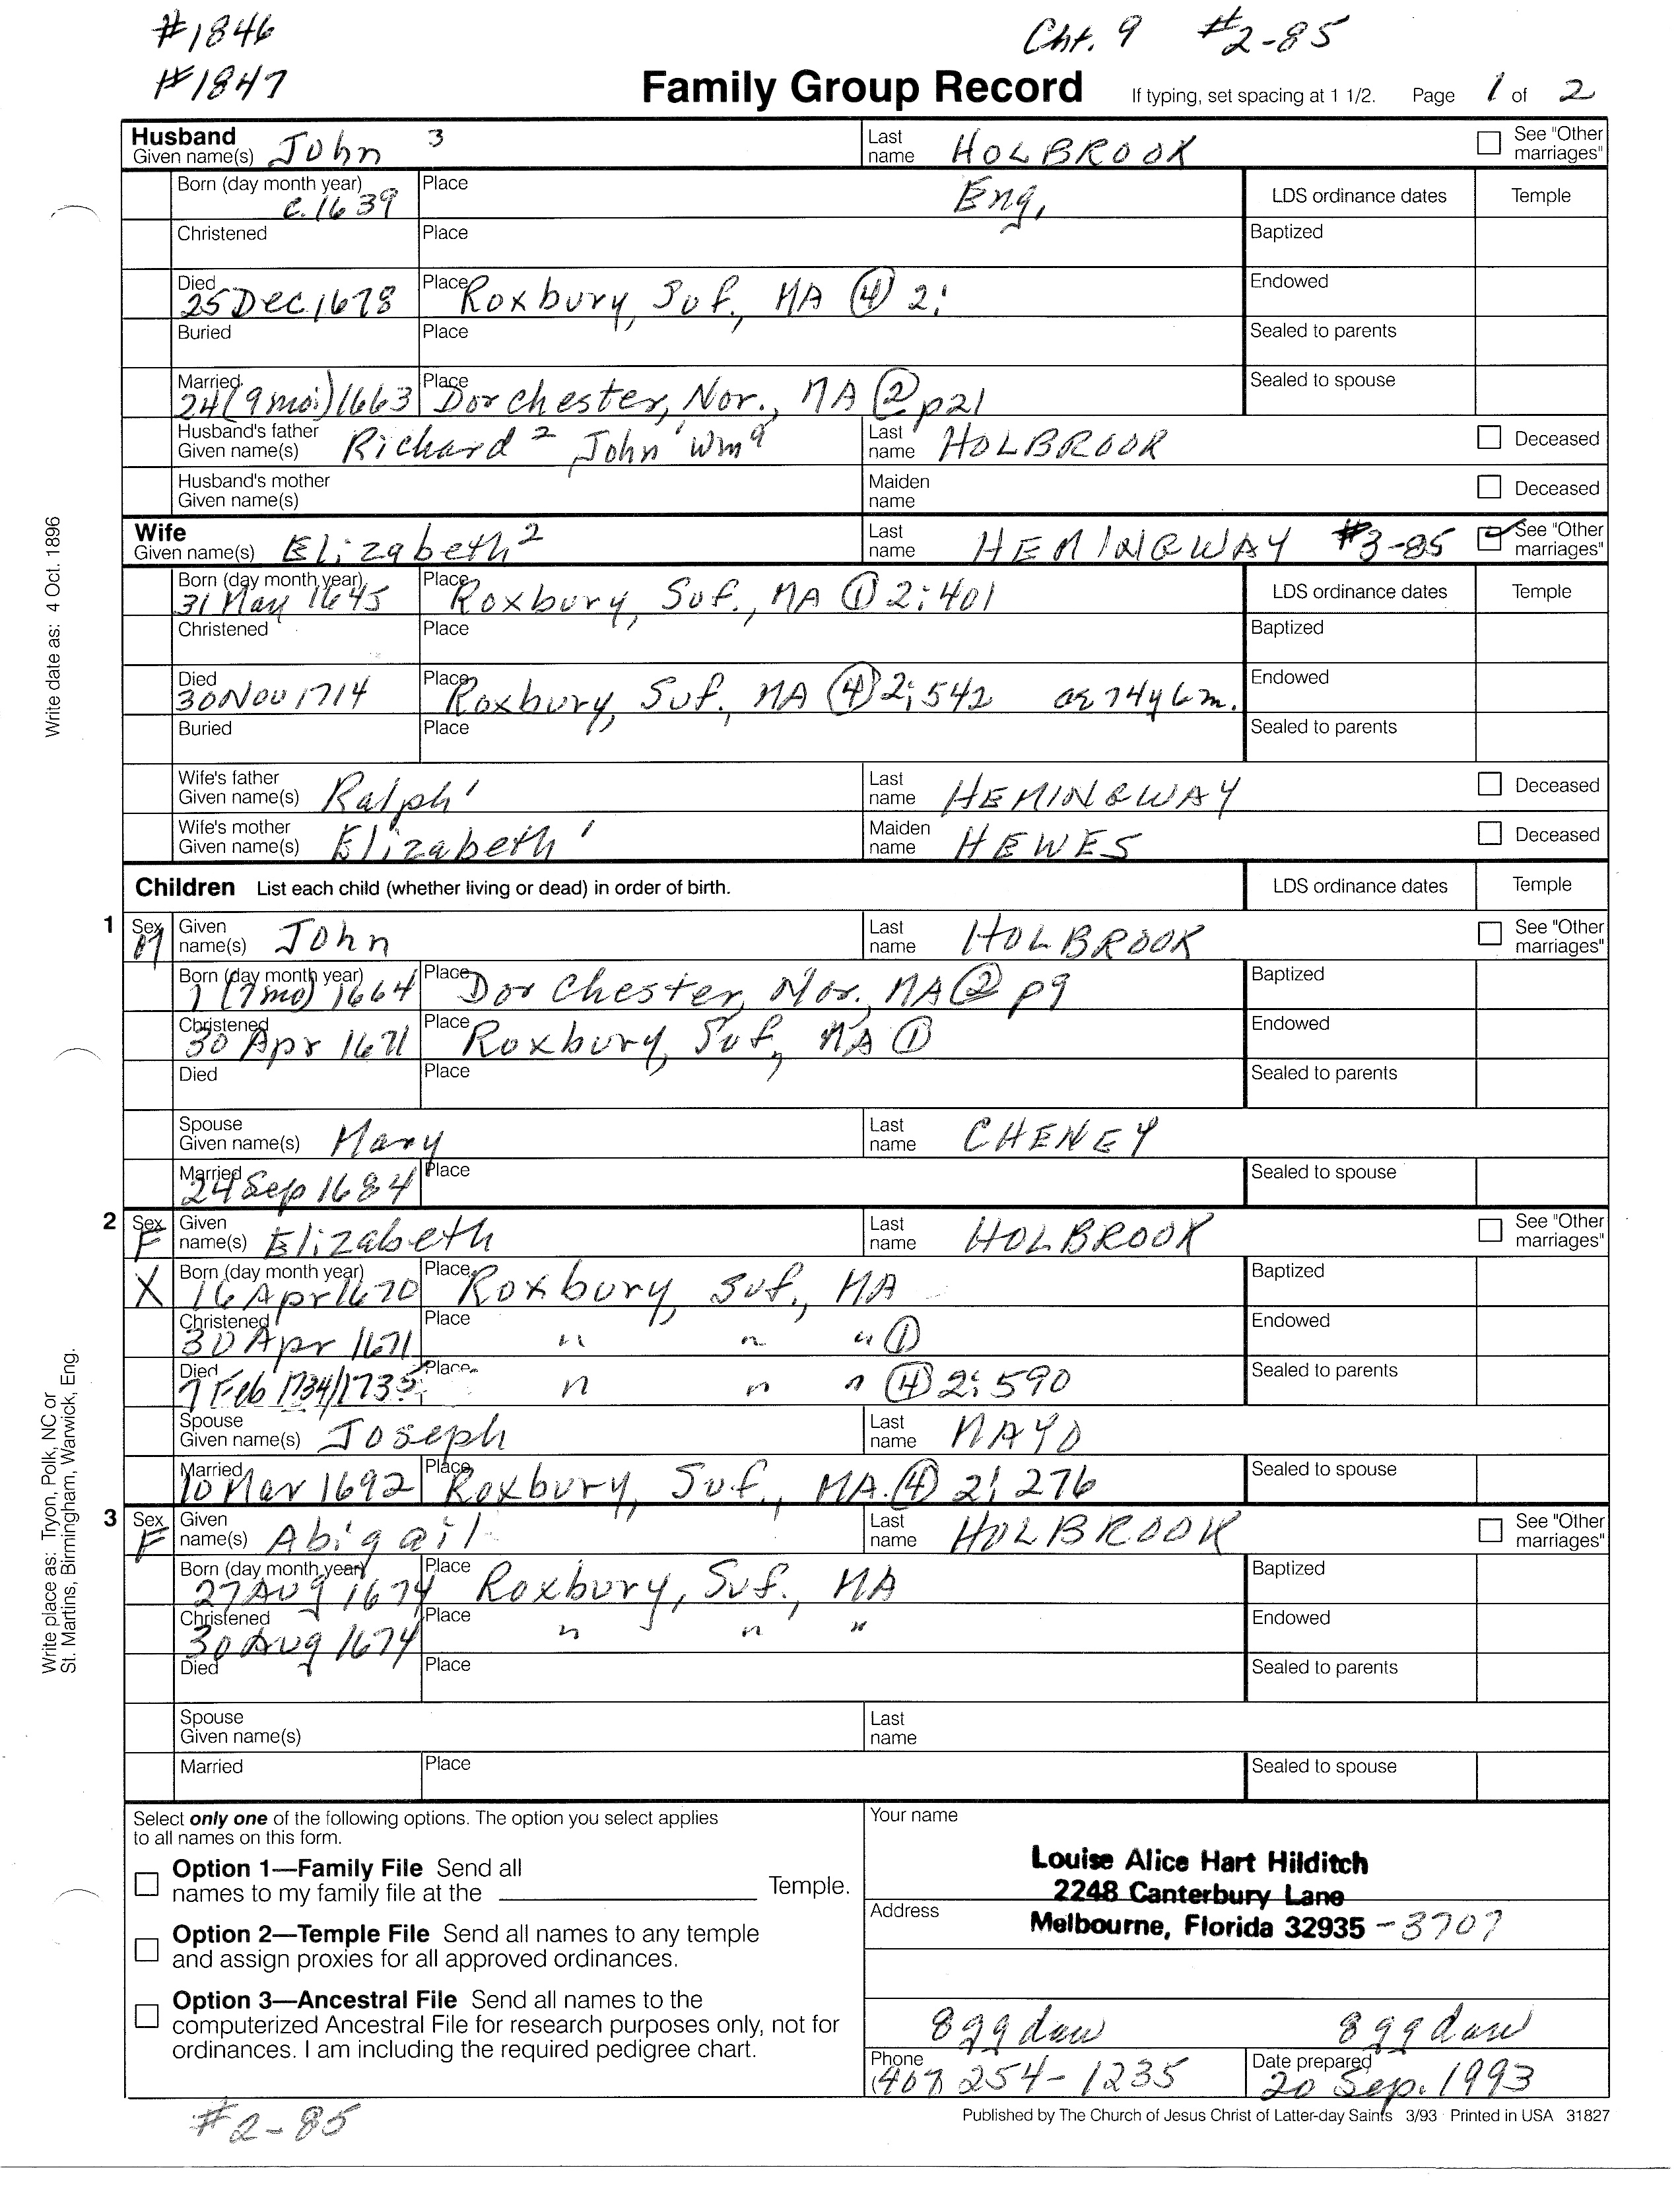 #1846
Cht. 9 #2-85
#1847
Family Group Record If typing, set spacing at 1 1/2. Page 1 of 2
Husband Given name(s) John 3 Last name HOLBROOK See "Other marriages"
Born (day month year) c. 1639 Place Eng, LDS ordinance dates Temple
Christened Place Baptized
Died 25 Dec 1678 Place Roxbury, Suf., MA ④ 2: Endowed
Buried Place Sealed to parents
Married 24 (9 mo:) 1663 Place Dorchester, Nor., MA ② p21 Sealed to spouse
Husband's father Given name(s) Richard 2 John 1 Wm a Last name HOLBROOK Deceased
Husband's mother Given name(s) Maiden name Deceased
Wife Given name(s) Elizabeth 2 Last name HEMINGWAY #3-85 See "Other marriages"
Born (day month year) 31 May 1645 Place Roxbury, Suf., MA ① 2:401 LDS ordinance dates Temple
Christened Place Baptized
Died 30 Nov 1714 Place Roxbury, Suf., MA ④ 2; 542 ae 74y 6m. Endowed
Buried Place Sealed to parents
Wife's father Given name(s) Ralph 1 Last name HEMINGWAY Deceased
Wife's mother Given name(s) Elizabeth 1 Maiden name HEWES Deceased
Children List each child (whether living or dead) in order of birth. LDS ordinance dates Temple
1 Sex M Given name(s) John Last name HOLBROOK See "Other marriages"
Born (day month year) 1 (7 mo) 1664 Place Dorchester, Nor., MA ② p9 Baptized
Christened 30 Apr 1671 Place Roxbury, Suf, MA ① Endowed
Died Place Sealed to parents
Spouse Given name(s) Mary Last name CHENEY
Married 24 Sep 1684 Place Sealed to spouse
2 Sex F Given name(s) Elizabeth Last name HOLBROOK See "Other marriages"
X Born (day month year) 16 Apr 1670 Place Roxbury, Suf., MA Baptized
Christened 30 Apr 1671 Place " " " ① Endowed
Died 7 Feb 1734/1735 Place " " " ④ 2: 590 Sealed to parents
Spouse Given name(s) Joseph Last name MAYO
Married 10 Mar 1692 Place Roxbury, Suf., MA. ④ 2: 276 Sealed to spouse
3 Sex F Given name(s) Abigail Last name HOLBROOK See "Other marriages"
Born (day month year) 27 Aug 1674 Place Roxbury, Suf., MA Baptized
Christened 30 Aug 1674 Place " " " Endowed
Died Place Sealed to parents
Spouse Given name(s) Last name
Married Place Sealed to spouse
Select only one of the following options. The option you select applies
to all names on this form.
Option 1—Family File Send all
names to my family file at the Temple.
Option 2—Temple File Send all names to any temple
and assign proxies for all approved ordinances.
Option 3—Ancestral File Send all names to the
computerized Ancestral File for research purposes only, not for
ordinances. I am including the required pedigree chart.
Your name
Louise Alice Hart Hilditch
2248 Canterbury Lane
Address Melbourne, Florida 32935 -3707
Phone (407) 254-1235 Date prepared 20 Sep. 1993
#2-85
Published by The Church of Jesus Christ of Latter-day Saints 3/93 Printed in USA 31827
Write date as: 4 Oct. 1896
Write place as: Tryon, Polk, NC or
St. Martins, Birmingham, Warwick, Eng.